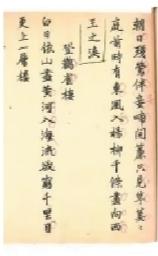 朝日殘鶯伴妾啼開簾只見草萋々
庭前時有東風入楊柳千條盡向西
王之渙
登鸛雀樓
白日依山盡黃河入海流欲窮千里目
更上一層樓